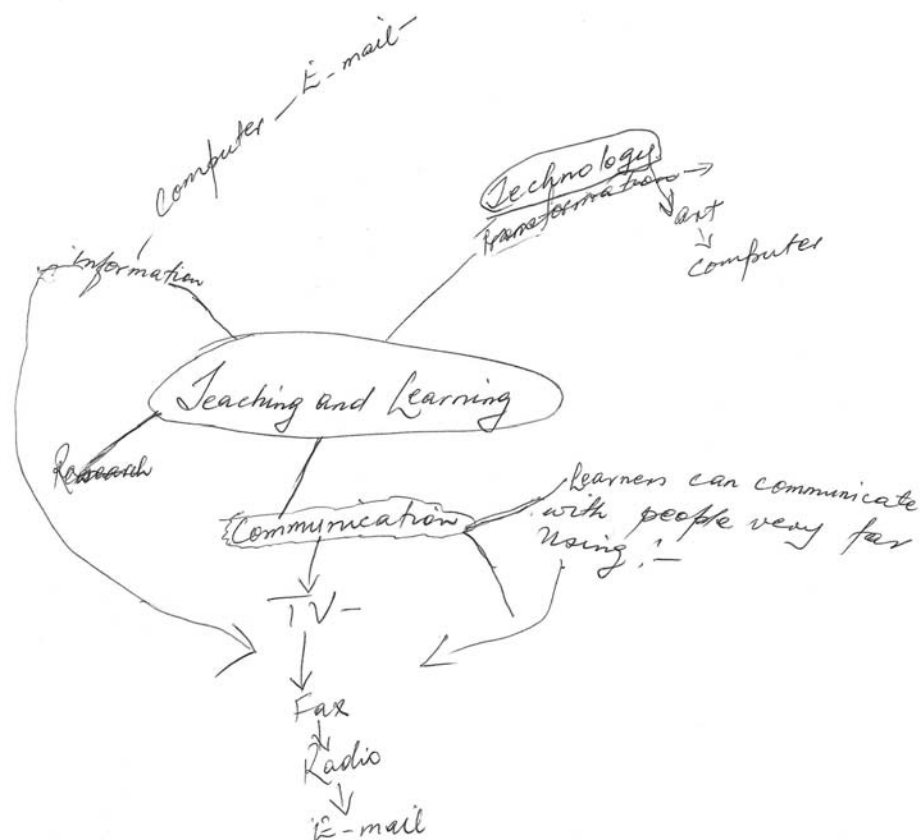 E-mail
computer
Technology
Transformation
art
computer
information
Teaching and Learning
Research
Communication
Learners can communicate
with people very far
using :-
TV-
Fax
Radio
E-mail